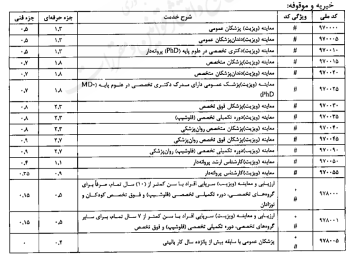 خیریه و موقوفه:
کد ملی ویژگی کد شرح خدمت جزء حرفه‌ای جزء فنی
۹۷۰۰۰۰ # معاینه (ویزیت) پزشکان عمومی ۱,۲ ۰,۵
۹۷۰۰۰۵ # معاینه (ویزیت)دندان‌پزشکان عمومی ۱,۲ ۰,۵
۹۷۰۰۱۰ # معاینه (ویزیت)دکتری تخصصی در علوم پایه (PhD) پروانه‌دار ۱,۲ ۰,۵
۹۷۰۰۱۵ # معاینه (ویزیت)پزشکان متخصص ۱,۸ ۰,۷
۹۷۰۰۲۰ # معاینه (ویزیت)دندان‌پزشکان متخصص ۱,۸ ۰,۷
۹۷۰۰۲۵ # معاینه (ویزیت)پزشک عمومی دارای مدرک دکتری تخصصی در علوم پایه (MD-
PhD) ۱,۸ ۰,۷
۹۷۰۰۳۰ # معاینه (ویزیت)پزشکان فوق تخصص ۲,۲ ۰,۸
۹۷۰۰۳۵ # معاینه (ویزیت)دوره تکمیلی تخصصی (فلوشیپ) ۲,۲ ۰,۸
۹۷۰۰۴۰ # معاینه (ویزیت)پزشکان متخصص روان‌پزشکی ۲,۲ ۰,۸
۹۷۰۰۴۵ # معاینه (ویزیت)پزشکان فوق تخصص روان‌پزشکی ۲,۷ ۰,۹
# معاینه (ویزیت)دوره تکمیلی تخصصی (فلوشیپ) روان‌پزشکی ۲,۷ ۰,۹
۹۷۰۰۵۰ # معاینه (ویزیت)کارشناس ارشد پروانه‌دار ۱,۱ ۰,۴
۹۷۰۰۵۵ # معاینه (ویزیت)کارشناس پروانه‌دار ۰,۹ ۰,۳۵
۹۷۸۰۰۰ * # ارزیابی و معاینه (ویزیت) سرپایی افراد با سن کمتر از (۱۰) سال تمام، صرفاً برای
گروه‌های تخصصی، دوره تکمیلی تخصصی (فلوشیپ) و فوق تخصص کودکان و
نوزادان ۰,۵ ۰,۱۵
۹۷۸۰۰۱ * # ارزیابی و معاینه (ویزیت) سرپایی افراد با سن کمتر از ۷ سال تمام، برای سایر
گروه‌های تخصصی، دوره تکمیلی تخصصی (فلوشیپ) و فوق تخصص ۰,۵ ۰,۱۵
۹۷۸۰۰۵ * # پزشکان عمومی با سابقه بیش از پانزده سال کار بالینی ۰,۴ ۰